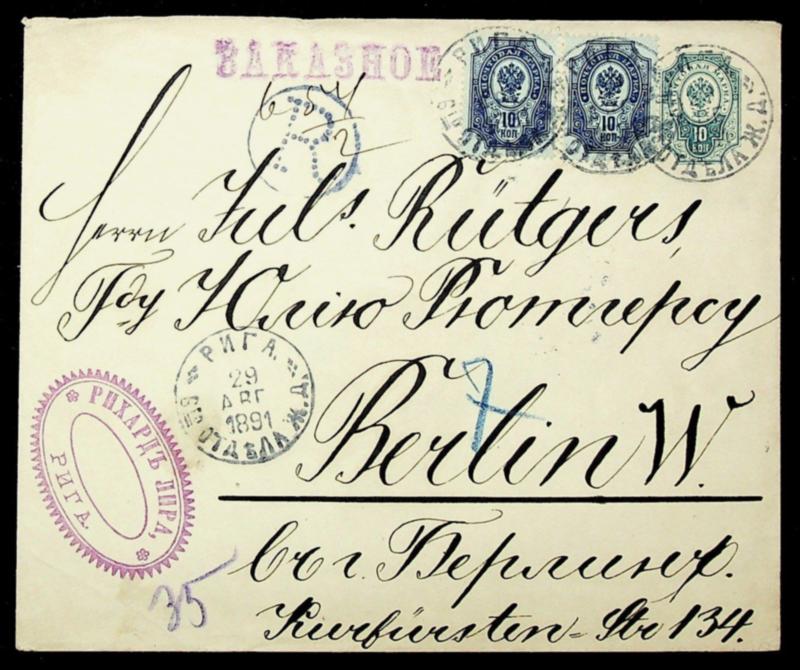 ЗАКАЗНОЕ
654/2
R
ПОЧТОВАЯ МАРКА
10
КОП
ПОЧТОВАЯ МАРКА
10
КОП
10
КОП
Herrn Juls. Rütgers,
Гду Юлію Рютгерсу
РИГА.
29
АВГ
1891
ОТДѢЛ. Ж.Д.
7
Berlin W.
РИХАРДЪ ЛИРА,
РИГА.
въ г. Берлинѣ.
35
Kurfürsten-Str 134.